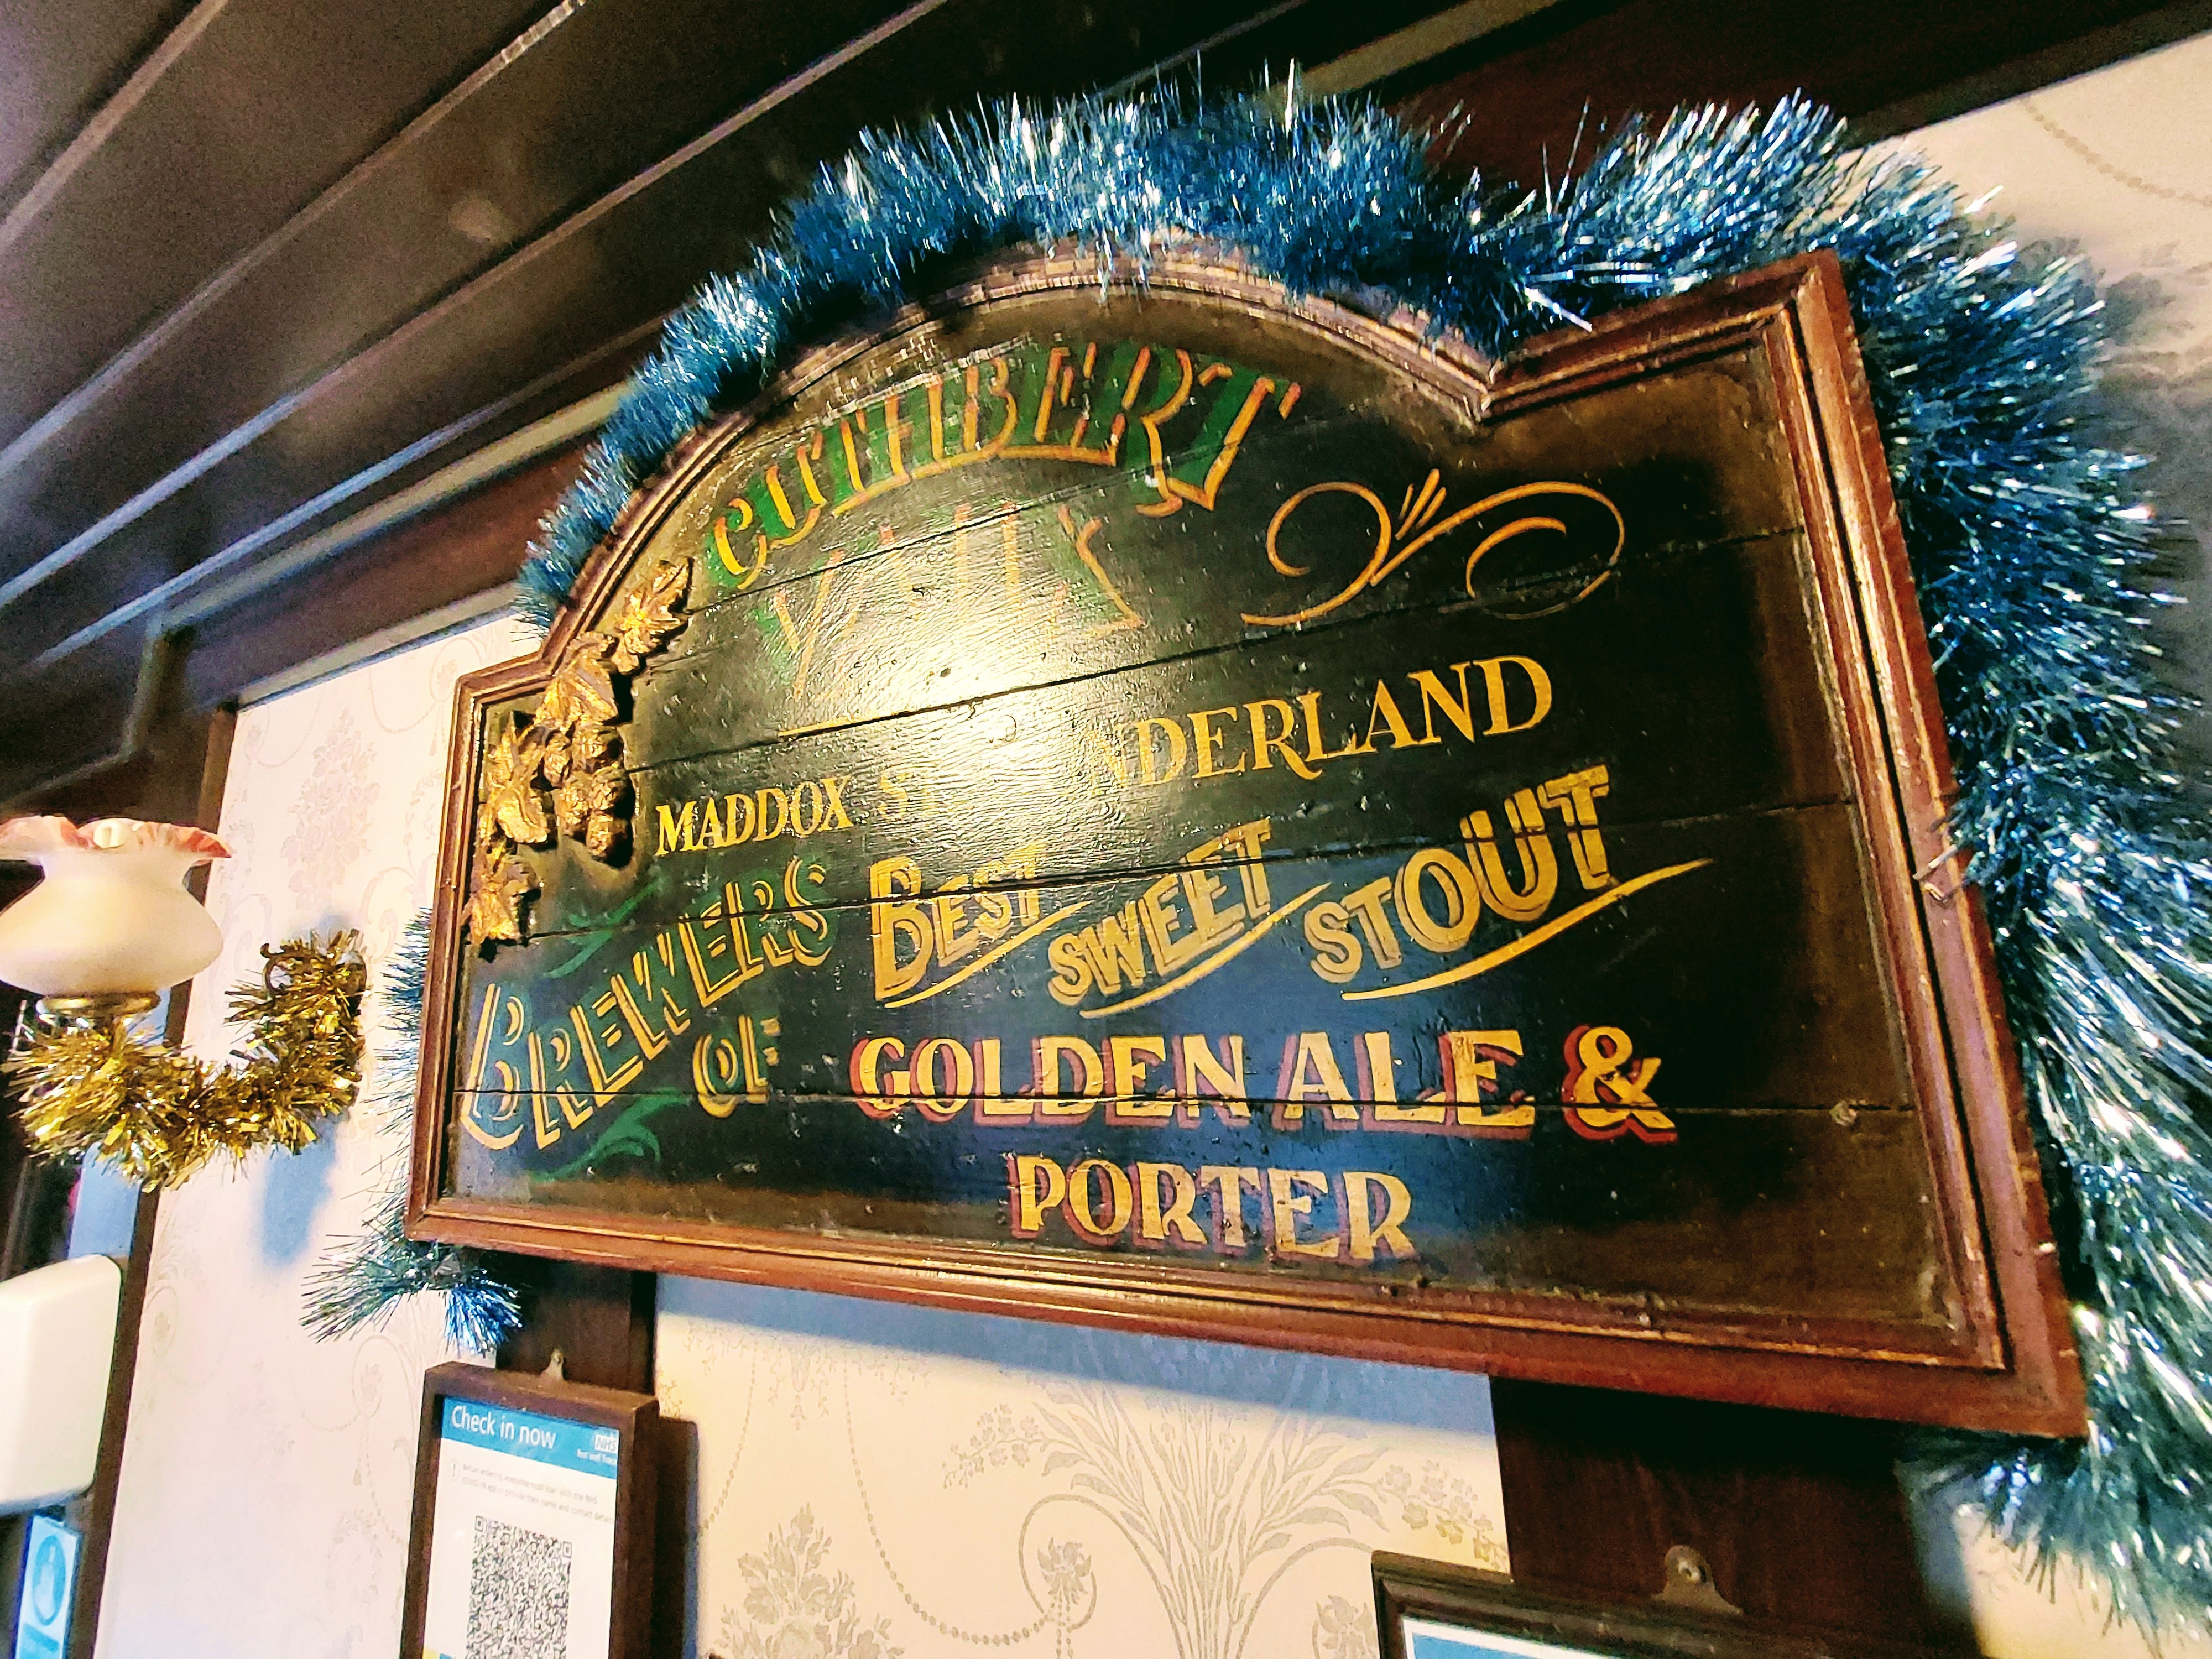 CUTHBERT
MADDOX ST SUNDERLAND
BREWERS OF
BEST SWEET STOUT
GOLDEN ALE &
PORTER
Check in now
NHS
Test and Trace